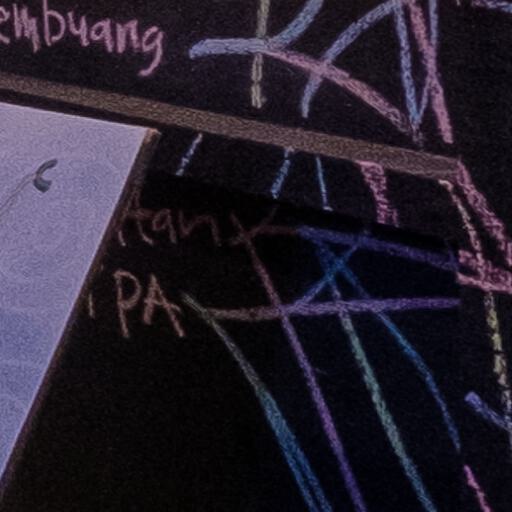 embuang
tan
iPA